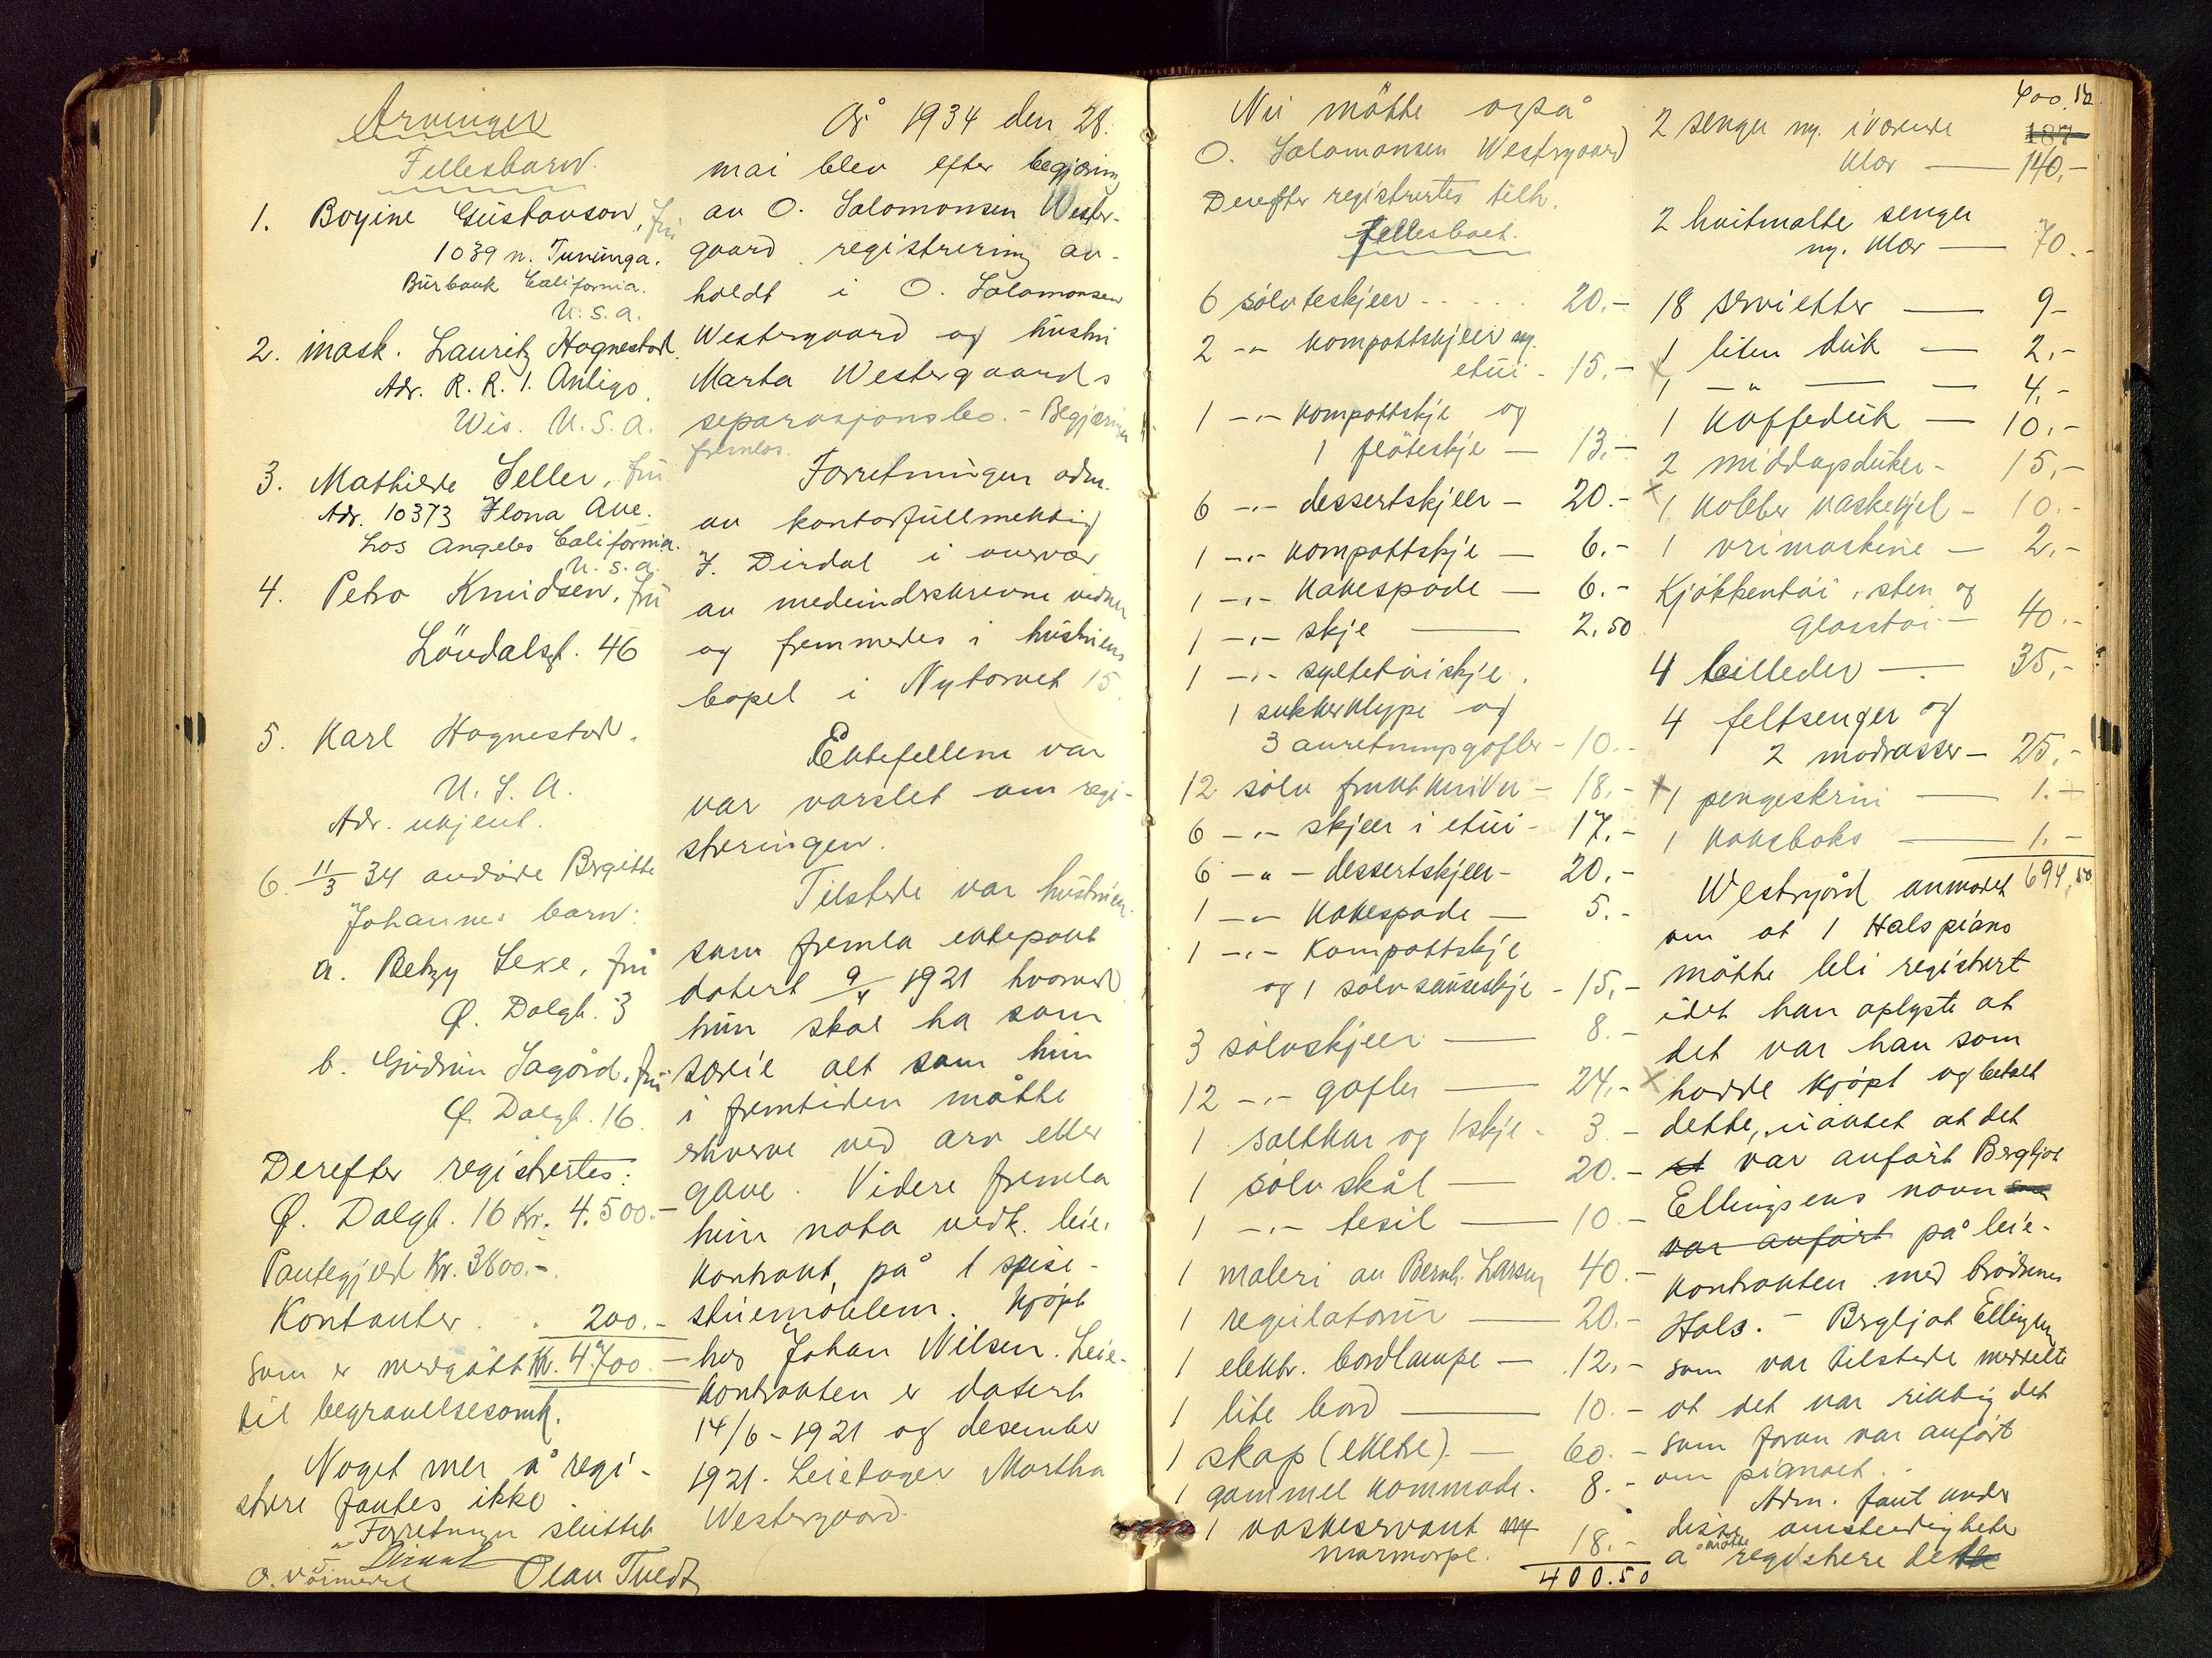 Arvinger
Fellesbarn.
1. Bogine Gustavson, fru
1039 n. Tununga.
Burbank California.
U.S.A.
2. mask. Lauritz Hognestad.
Adr. R. R. 1. Antigo,
Wis. U.S.A.
3. Mathilde Seller, fru
Adr. 10373 Ilona Ave.
Los Angeles California.
U.S.A.
4. Petra Knudsen, fru
Lövdalsgt. 46
5. Karl Hognestad.
U.S.A.
Adr. ukjent.
6. 11/3 34 avdöde Bergitte
Johannes barn:
a. Betzy Sexe, fru
Ø. Dalgt. 3
b. Gudrun Sagård, fru
Ø. Dalgt. 16.
Derefter registrertes:
Ø. Dalgt. 16 Kr. 4.500.-
Pantegjeld Kr. 3800.-.
Kontanter . . 200.-
Kr. 4700.-
som er medgått
til begravelsesomk.
Noget mer å regi-
strere fantes ikke.
Forretningen sluttet
Dirdal
Olav Tvedt
År 1934 den 28.
mai blev efter begjæring
av O. Salomonsen Wester-
gaard registrering av-
holdt i O. Salomonsen
Westergaard og hustru
Marta Westergaards
separasjonsbo. - Begjæringen
fremlas.
Forretningen adm.
av kontorfullmektig
J. Dirdal i overvær
av medunderskrevne vidner
og fremmedes i hustruens
bopel i Nytorvet 15.
Ektefellene var
var varslet om regi-
streringen.
Tilstede var hustruen
som fremla ektepakt
datert 9/4 1921 hvorved
hun skal ha som
særeie alt som hun
i fremtiden måtte
erhverve ved arv eller
gave. Videre fremla
hun nota vedk. leie-
kontrakt, på 1 spise-
stuemöblem. Kjöpt
hos Johan Nilsen. Leie-
kontrakten er datert
14/6 - 1921 og desember
1921. Leietager Martha
Westergaard.
Nu mötte også
O. Salomonsen Westergaard
Derefter registrertes tilh.
Fellesboet.
6 sölvteskjeer - - - - - 20.-
2 -"- kompottskjeer m.
etui - 15.-
1 -"- kompottskje og
1 flöteskje - 13.-
6 -"- dessertskjeer - 20.-
1 -"- kompottskje - 6.-
1 -"- kakespade - 6.-
1 -"- skje - 2.50
1 -"- syltetöiskje,
1 sukkerklype og
3 anretningsgafler - 10.-
12 sölv fruktkniver - 18.-
6 -"- skjeer i etui - 17.-
6 -"- dessertskjeer - 20.-
1 -"- kakespade - 5.-
1 -"- kompottskje
og 1 sölvsauseskje - 15,-
3 sölvskjeer - 8.-
12 -"- gafler - 24.-
1 saltkar og 1 skje - 3.-
1 sölvskål - 20.-
1 -"- tesil - 10.-
1 maleri av Bernh. Larsen 40.-
1 regulatorur - 20.-
1 elektr. bordlampe - 12.-
1 lite bord - 10.-
1 skap (ekete) - 60.-
1 gammel kommode. 8.-
1 vaskeservant m
marmorpl. 18.-
400.50
400.50
187
2 senger m. iværende
klær - 140,-
2 hvitmalte senger
m. klær - 70.-
18 servietter - 9-
1 liten duk - 2.-
1 -"- - 4.-
1 kaffeduk - 10.-
2 middagsduker - 15.-
x 1 kobber vaskekjel - 10.-
1 vrimaskine - 2.-
Kjökkentöi, sten og
glasstöi - 40.-
4 billeder - 35,-
4 feltsenger og
2 madrasser - 25.-
x 1 pengeskrin - 1.-
1 kakeboks - 1.-
694,50
Westergård anmodet
om at 1 Hals piano
måtte bli registrert
idet han oplyste at
det var han som
x hadde kjöpt og betalt
dette, uanset at det
var anfört Bergljot
Ellingsens navn
var anfört på leie-
kontrakten med brödrene
Hals. - Bergljot Ellingsen
som var tilstede meddelte
at det var riktig det
som foran var anfört
om pianoet.
Adm. fant under
disse omstendigheter
å måtte registrere dette